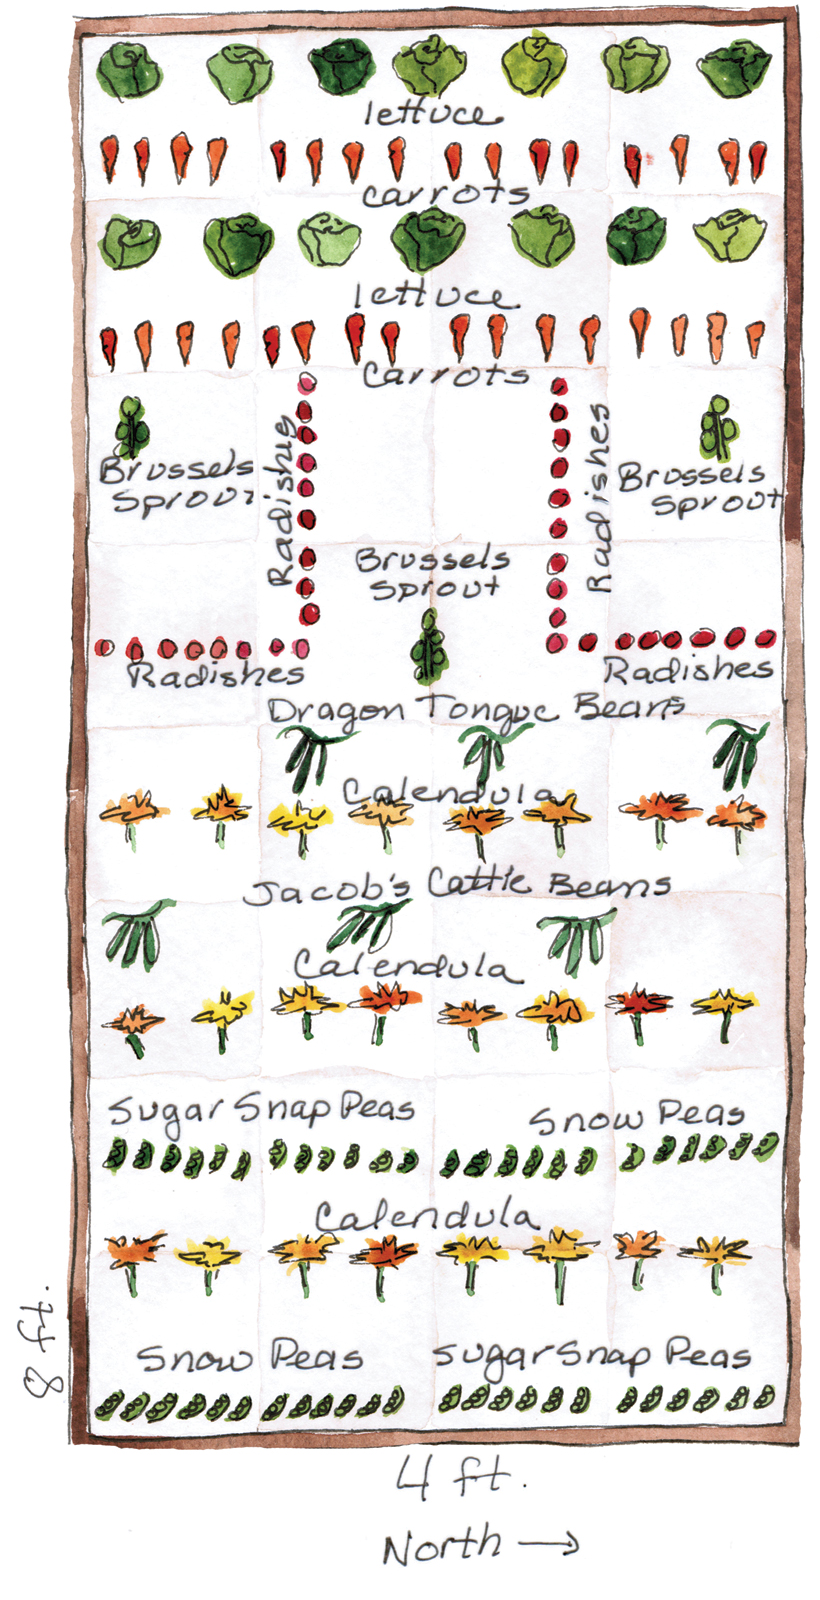 lettuce
carrots
lettuce
Carrots
Radishes
Radishes
Brussels
Sprout
Brussels
Sprout
Brussels
Sprout
Radishes
Radishes
Dragon Tongue Beans
Calendula
Jacob's Cattle Beans
Calendula
Sugar Snap Peas
Snow Peas
Calendula
Snow Peas
Sugar Snap Peas
8 ft.
4 ft.
North →